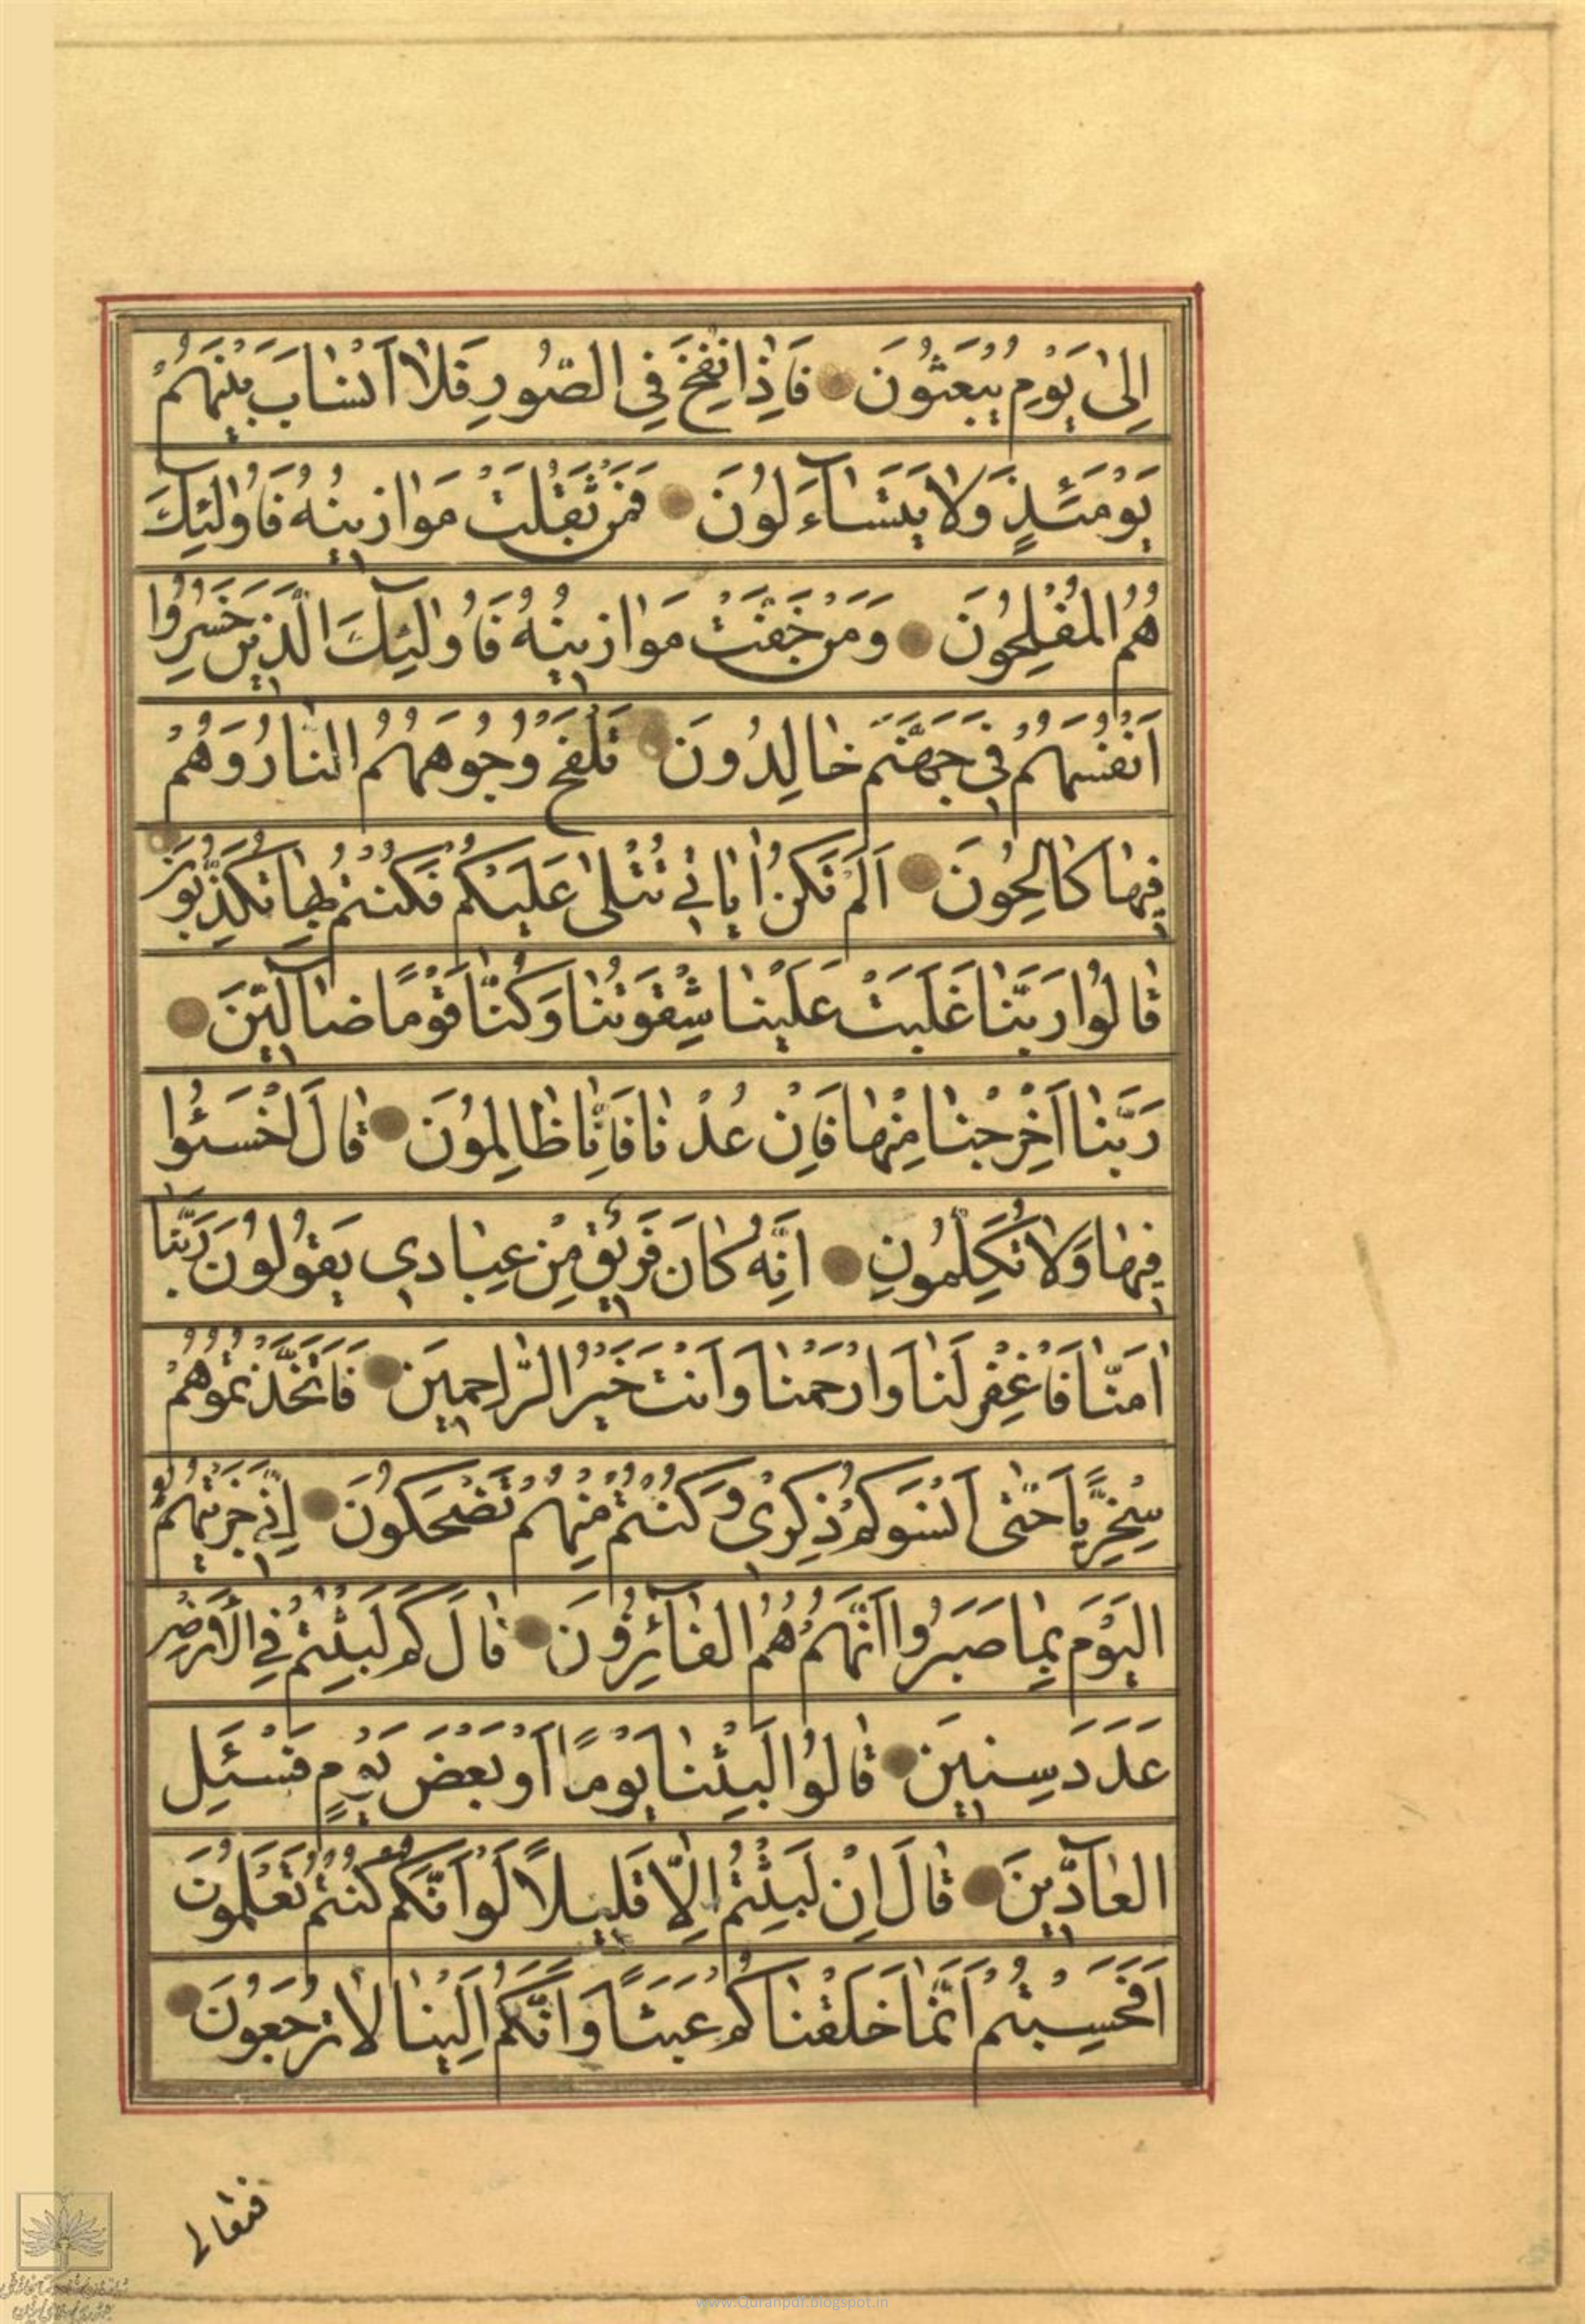 اِلىٰ يَوْمِ يُبْعَثُونَ فَاِذٰا نُفِخَ فِي الصُّورِ فَلاٰ اَنْسٰابَ بَيْنَهُمْ
يَوْمَئِذٍ وَلاٰ يَتَسٰآءَلُونَ فَمَنْ ثَقُلَتْ مَوٰازينُهُ فَاُولٰئِكَ
هُمُ الْمُفْلِحُونَ وَمَنْ خَفَّتْ مَوٰازينُهُ فَاُولٰٓئِكَ الَّذينَ خَسِرُوا
اَنْفُسَهُمْ في جَهَنَّمَ خٰالِدُونَ تَلْفَحُ وُجُوهَهُمُ النّٰارُ وَهُمْ
فيهٰا كٰالِحُونَ اَلَمْ تَكُنْ اٰيٰاتي تُتْلىٰ عَلَيْكُمْ فَكُنْتُمْ بِهٰا تُكَذِّبُونَ
قٰالُوا رَبَّنٰا غَلَبَتْ عَلَيْنٰا شِقْوَتُنٰا وَكُنّٰا قَوْمًا ضٰآلّينَ
رَبَّنٰا اَخْرِجْنٰا مِنْهٰا فَاِنْ عُدْنٰا فَاِنّٰا ظٰالِمُونَ قٰالَ اخْسَئُوا
فيهٰا وَلاٰ تُكَلِّمُونِ اِنَّهُ كٰانَ فَريقٌ مِنْ عِبٰادي يَقُولُونَ رَبَّنٰا
اٰمَنّٰا فَاغْفِرْ لَنٰا وَارْحَمْنٰا وَاَنْتَ خَيْرُ الرّٰاحِمينَ فَاتَّخَذْتُمُوهُمْ
سِخْرِيًّا حَتّٰى اَنْسَوْكُمْ ذِكْري وَكُنْتُمْ مِنْهُمْ تَضْحَكُونَ اِنّي جَزَيْتُهُمُ
الْيَوْمَ بِمٰا صَبَرُوا اَنَّهُمْ هُمُ الْفٰآئِزُونَ قٰالَ كَمْ لَبِثْتُمْ فِي الْاَرْضِ
عَدَدَ سِنينَ قٰالُوا لَبِثْنٰا يَوْمًا اَوْ بَعْضَ يَوْمٍ فَسْئَلِ
الْعٰآدّينَ قٰالَ اِنْ لَبِثْتُمْ اِلّٰا قَليلًا لَوْ اَنَّكُمْ كُنْتُمْ تَعْلَمُونَ
اَفَحَسِبْتُمْ اَنَّمٰا خَلَقْنٰاكُمْ عَبَثًا وَاَنَّكُمْ اِلَيْنٰا لاٰ تُرْجَعُونَ
فتعالى
www.Quranpdf.blogspot.in